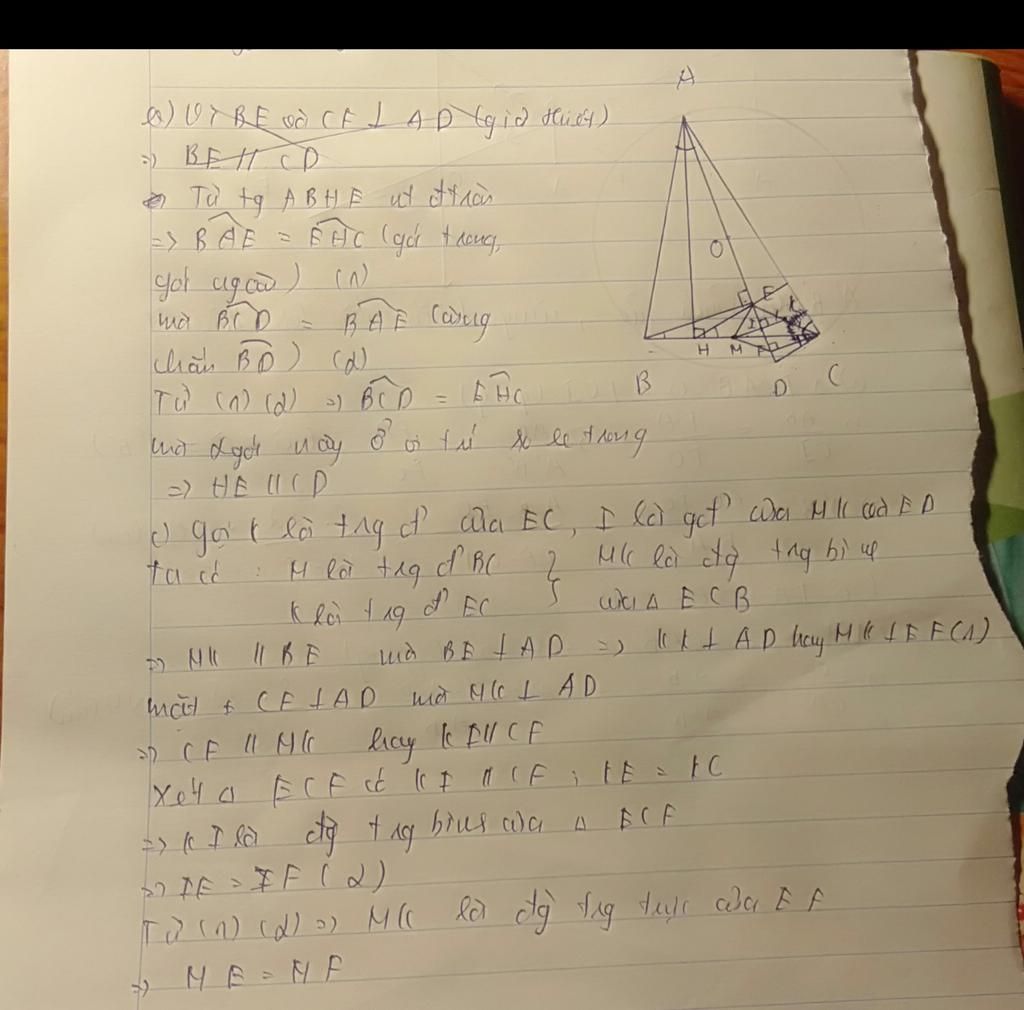 a) Vì BE và CF ⊥ AD (giả thiết)
=> BE // CD
Từ tg ABHE nt đtròn
=> BAE = EHC (góc trong,
góc ngoài) (1)
mà BCD = BAE (cùng
chắn BD) (2)
Từ (1) (2) => BCD = EHC
mà 2 góc này ở vị trí so le trong
=> HE // CD
c) Gọi K là trg đ' của EC, I là gđ' của MK và ED
ta có : M là trg đ' BC } MK là đg trg bình
K là trg đ' EC } của Δ ECB
=> MK // BE mà BE ⊥ AD => MK ⊥ AD hay MK ⊥ EF (1)
mặt ≠ CF ⊥ AD mà MK ⊥ AD
=> CF // MK hay KI // CF
Xét Δ ECF có KI // CF ; KE = KC
=> KI là đg trg bình của Δ ECF
=> IE = IF (2)
Từ (1) (2) => MK là đg trg trực của EF
=> ME = MF
A
O
E
I
K
H M F
B D C